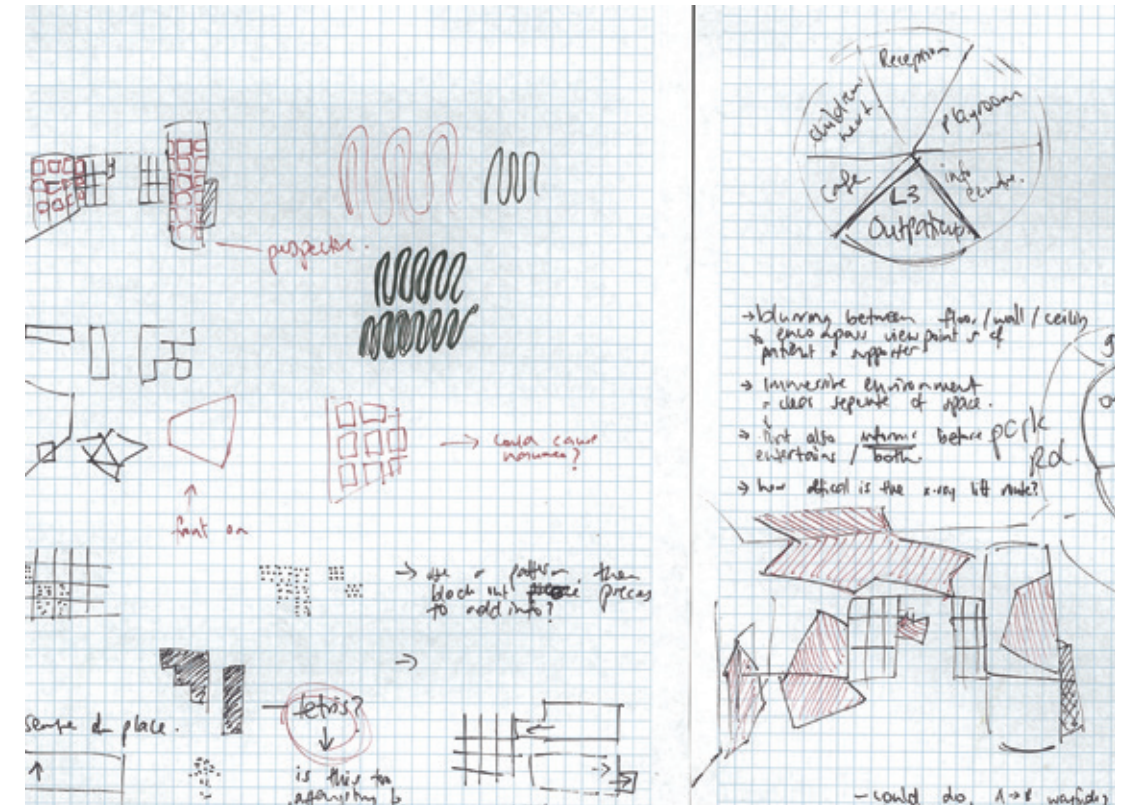 perspective.
→ could cause nausea?
↑
front on
→ use a pattern then
block out pieces
to add info?
→
sense of place.
tetris?
↓
is this too
Reception
playroom
info
centre.
L3
Outpatients
cafe
children
next.
→ blurring between floor/wall/ceiling
to encompass viewpoints of
patient & supporter
→ Immersive environment
= clear separate of space.
→ Print also informs before
entertains / both.
→ how critical is the x-ray lift route?
park
Rd.
- could do. 1→8